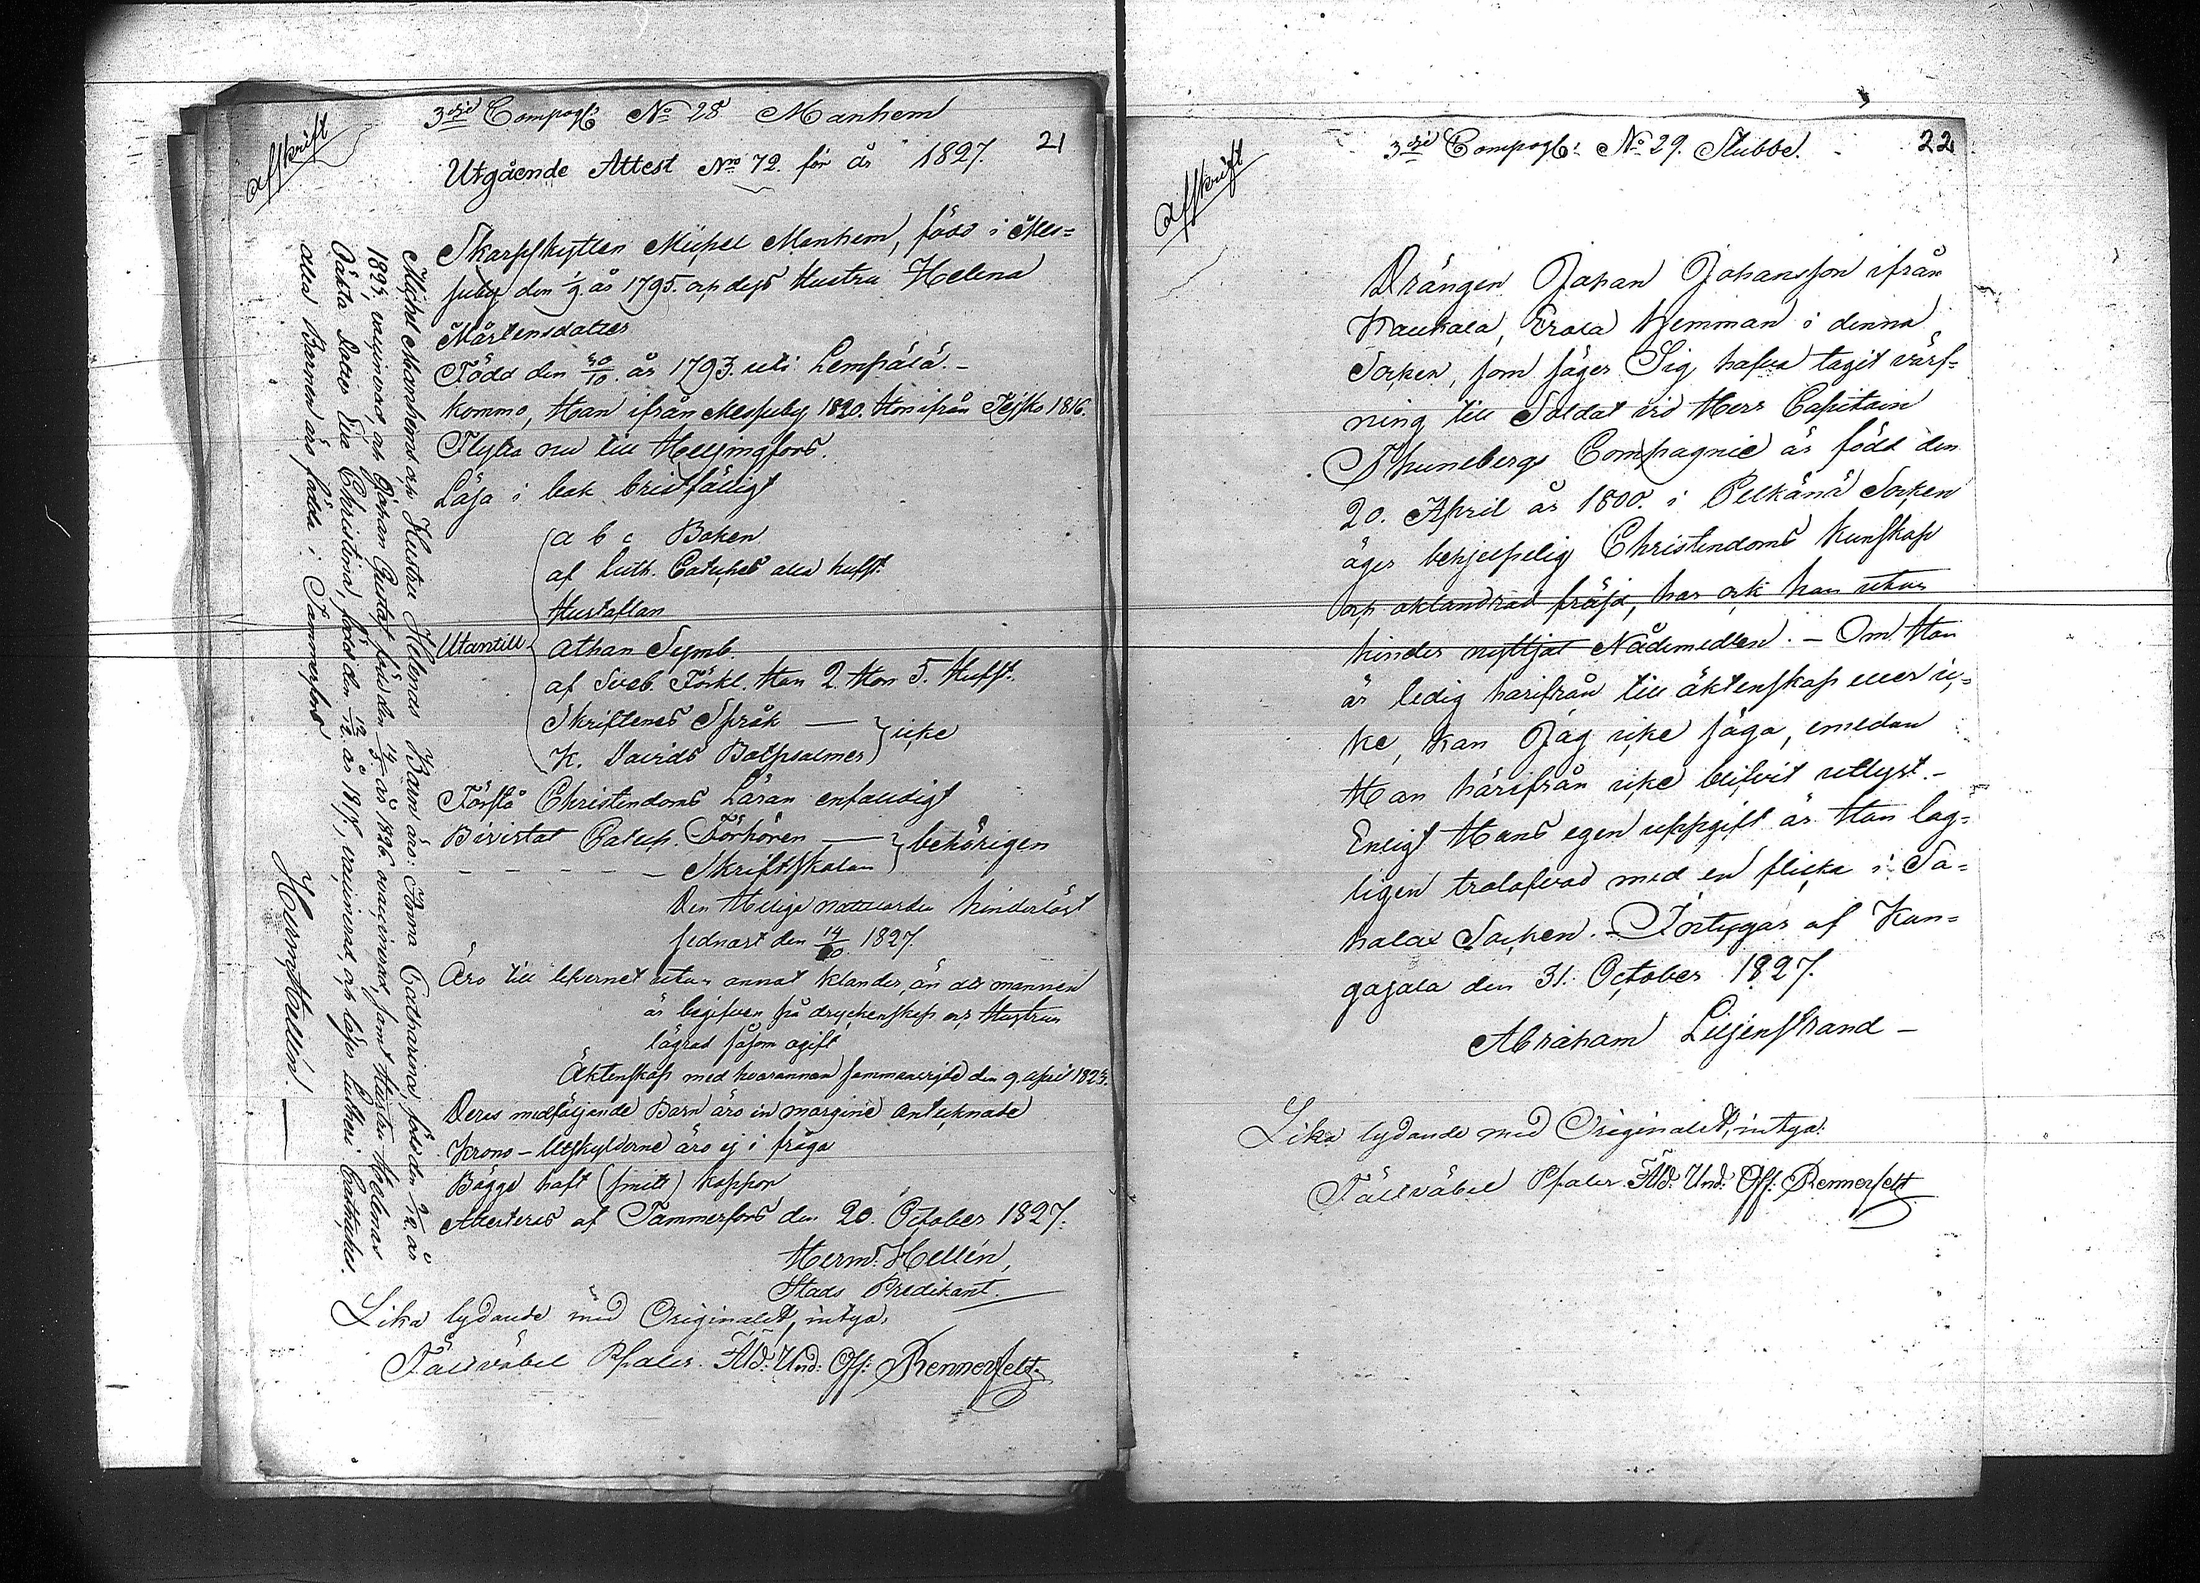 Afskrift
3dje Compagt: No 28 Manhem
21
Utgående Attest Nro 72. för år 1827.
Skarpskytten Michel Manhem, född i Mes=
suby den 1/9 år 1795. och dess Hustru Helena
Mårtensdotter
Född den 30/10. år 1793. uti Lempälä. –
Komno, Han ifrån Messuby 1820. Hon ifrån Tejsko 1816.
Flytta nu till Helsingfors.
Läsa i bok bristfälligt
Utantill
a b c Boken
af Luth. Cateches alla hufst.
Hustaflan
Athan Symb.
af Sveb. Förkl. Han 2. Hon 5. Hufst.
Skriftenes Språk —
K. Davids Botpsalmer } icke
Förstå Christendoms Läran enfaldigt
Bivistat Catech. Förhören —
– – – – – Skriftskolan } behörigen
Den Heliga nattvarden hinderlöst
sednast den 14/10 1827.
Äro till lefvernet utan annat klander, än att mannen
är begifven på dryckenskap och Hustrun
lägrad såsom ogift
Äktenskap med hvarannan sammanvigde den 9. April 1823.
Deras medföljande Barn äro in margine antecknade
Krono-Utskylderne äro ej i fråga
Bägge haft (smitt) koppor
Attesteras af Tammerfors den 20. October 1827.
Herm. Hellén,
Stads Predikant.
Lika lydande med Originalet, intyga:
Fältväbel Pfaler. Fäld: Und: Off: Rennerfelt
Michel Manhems och Hustru Helenas Barn äro: Anna Catharina, född den 2/12 år
1824, vaccinerad, och Johan Gustaf, född den 14/5 år 1826. ovaccinerad, samt Hustru Helenas
Oäkta Dotter Eva Christina, född den 12/12. år 1817, vaccinerad, och läser Lutheri Catheches.
Alla Barnen äro födda i Tammerfors
Herm. Hellén.
Afskrift
3dje Compagt: No 29. Stubbe.
22
Drängen Johan Johansson ifrån
Haukala, Erola Hemman i denna
Socken, som säger Sig hafva tagit värf=
ning till Soldat vid Herr Capitain
Thunebergs Compagnie är född den
20. April år 1800. i Pelkänä Socken
äger behjelpelig Christendoms Kunskap
och oklandrad fräjd, har ock han utan
hinder nyttjat Nådemedlen. – Om Han
är ledig härifrån till äktenskap eller ic=
ke, kan Jag icke säga, emedan
Han härifrån icke blifvit utlyst. –
Enligt Hans egen uppgift är Han lag=
ligen trolofvad med en flicka i Sa=
halax Socken. – Intygar af Kan=
gasala den 31. October 1827.
Abraham Liljenstrand –
Lika lydande med Originalet, intyga:
Fältväbel Pfaler. Fäld: Und: Off: Rennerfelt